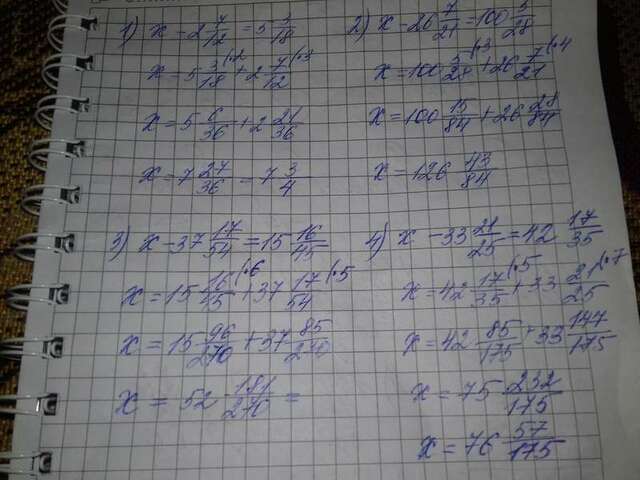 1) x - 2 7/12 = 5 3/18
x = 5 3/18 (·2 + 2 7/12 (·3
x = 5 6/36 + 2 21/36
x = 7 27/36 = 7 3/4
2) x - 26 7/21 = 100 5/28
x = 100 5/28 (·3 + 26 7/21 (·4
x = 100 15/84 + 26 28/84
x = 126 43/84
3) x - 37 17/54 = 15 16/45
x = 15 16/45 (·6 + 37 17/54 (·5
x = 15 96/270 + 37 85/270
x = 52 181/270 =
4) x - 33 21/25 = 42 17/35
x = 42 17/35 (·5 + 33 21/25 (·7
x = 42 85/175 + 33 147/175
x = 75 232/175
x = 76 57/175